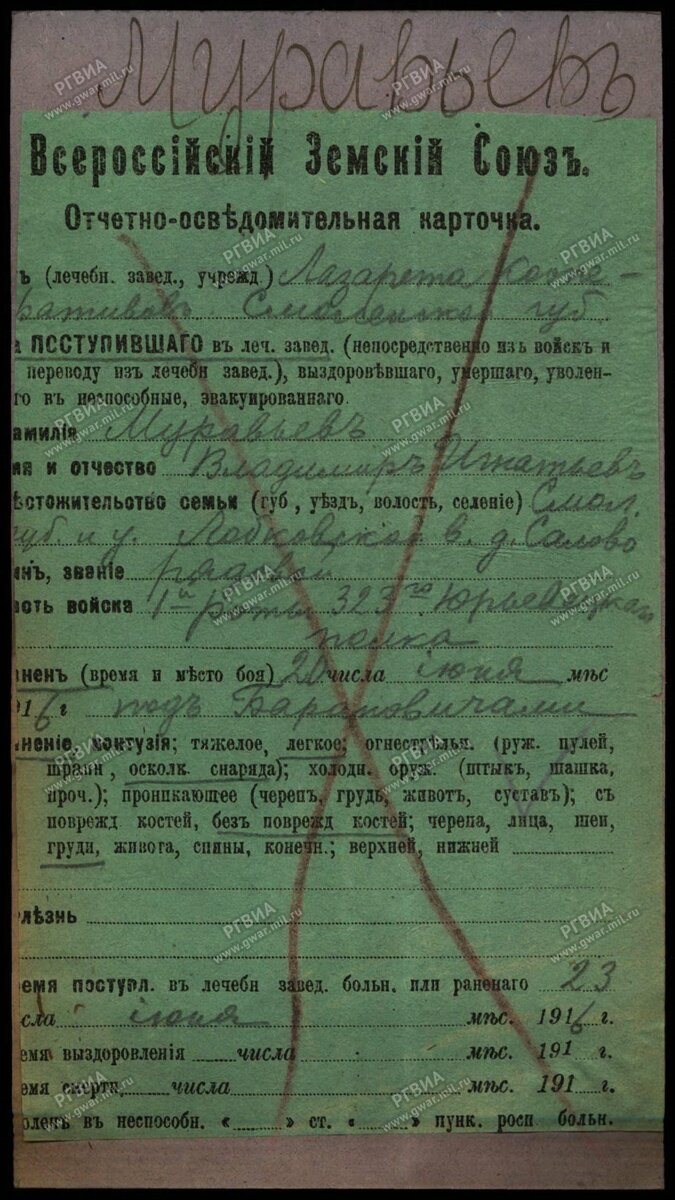 Муравьевъ
Всероссійскій Земскій Союзъ.
Отчетно-освѣдомительная карточка.
ъ (лечебн. завед., учрежд) Лазарета Коопе-
ративовъ Смоленской губ
ПОСТУПИВШАГО въ леч. завед. (непосредственно изъ войскъ и
переводу изъ лечебн завед.), выздоровѣвшаго, умершаго, уволен-
го въ неспособные, эвакуированнаго.
амилія Муравьевъ
мя и отчество Владимиръ Игнатьевъ
ѣстожительство семьи (губ, уѣздъ, волость, селеніе) Смол.
губ. и у. Лобковской в. д. Салово
инъ, званіе рядовой
асть войска 1й роты 323го Юрьевецкаго
полка
аненъ (время и мѣсто боя) 20 числа іюня мѣс
916 г подъ Барановичами
аненіе, контузія; тяжелое, легкое; огнестрѣльн. (руж. пулей,
шрапн, осколк. снаряда); холодн. оруж. (штыкъ, шашка,
проч.); проникающее (черепъ, грудь, животъ, суставъ); съ
поврежд костей, безъ поврежд костей; черепа, лица, шеи,
груди, живота, спины, конечн.; верхней, нижней
олѣзнь
ремя поступл. въ лечебн завед. больн. или раненаго 23
исла іюня мѣс. 1916 г.
ремя выздоровленія числа мѣс. 191 г.
ремя смерти, числа мѣс. 191 г.
воленъ въ неспособн. « » ст. « » пунк. росп больн.
РГВИА
www.gwar.mil.ru